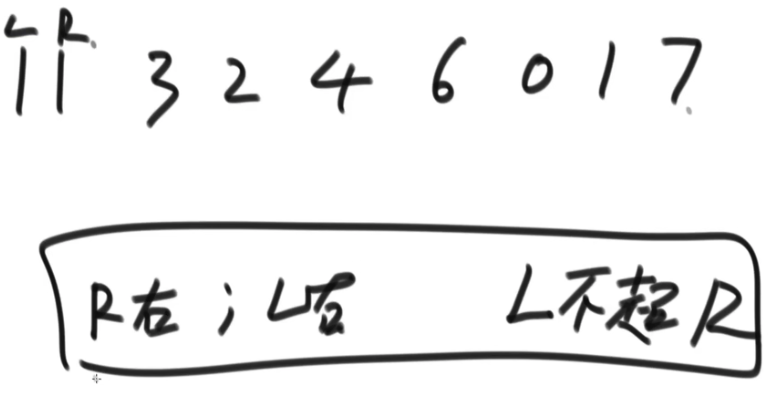 L R
3 2 4 6 0 1 7
R右；L右 L不超R